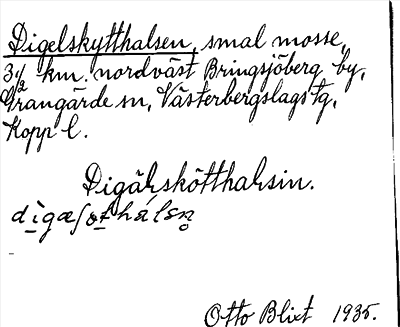 Digelskytthalsen, smal mosse,
3½ km. nordväst Bringsjöberg by,
Grangärde sn, Västerbergslags tg,
Kopp l.
Digäλskötthaλsin.
dìgæʃøthálsn̥
Otto Blixt 1935.